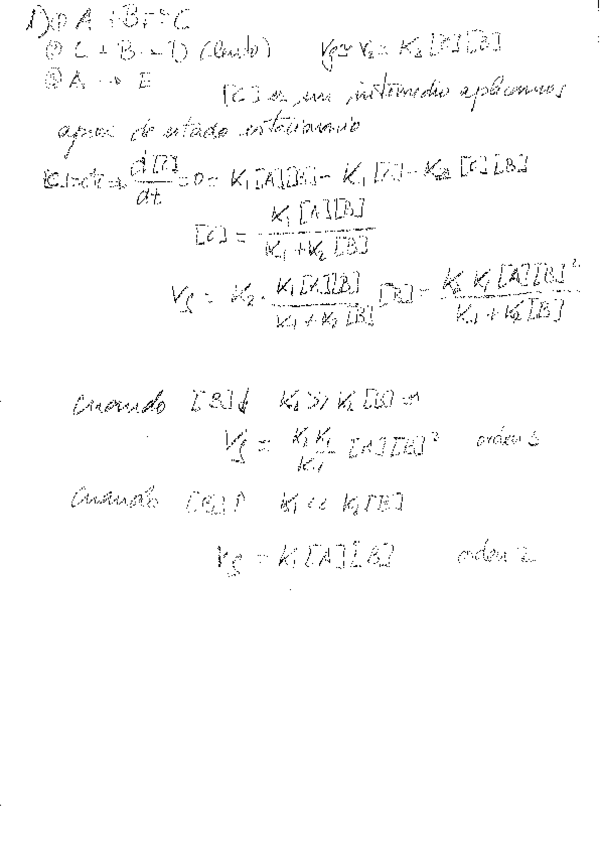 1) ① A + B ⇌ C
② C + B → D (lento) Vg ≃ V2 = K2 [C][B]
③ A → E
[C] es un intermedio aplicamos
aprox de estado estacionario
[C]=cte ⇒ d[C]/dt = 0 = K1[A][B] - K-1[C] - K2[C][B]
[C] = K1[A][B] / K-1 + K2[B]
Vg = K2 · K1[A][B] / K-1 + K2[B] [B] = K2 K1[A][B]² / K-1 + K2[B]
Cuando [B]↓ K-1 >> K2[B] ⇒
Vg = K2 K1 / K-1 [A][B]² orden 3
Cuando [B]↑ K-1 << K2[B]
Vg = K1[A][B] orden 2